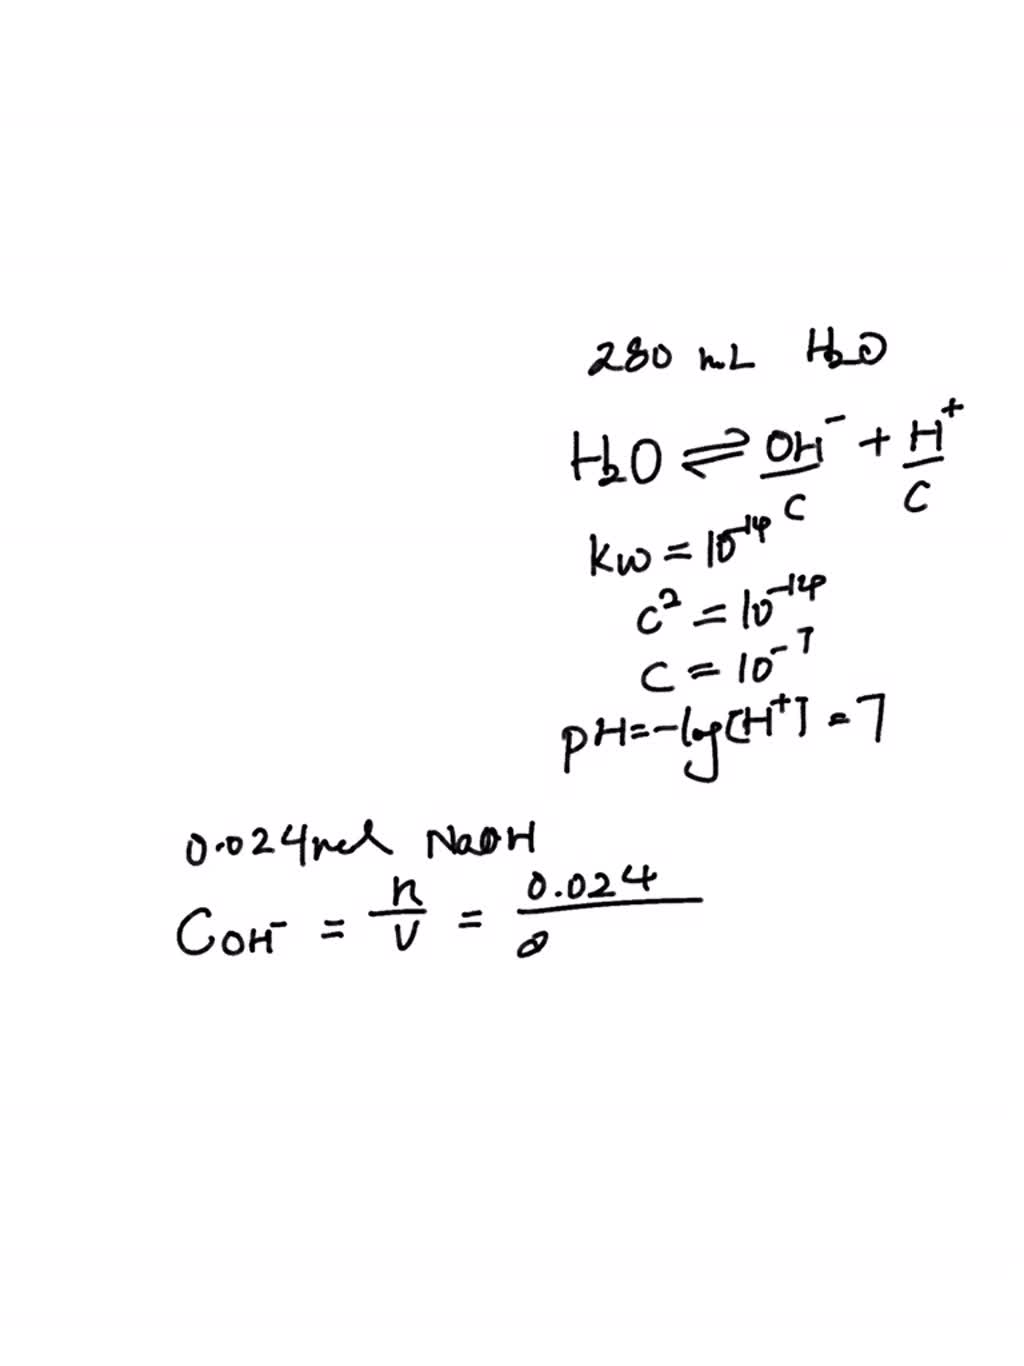 280 mL H₂O
H₂O ⇌ OH⁻ + H⁺
C C
kw = 10⁻¹⁴
C² = 10⁻¹⁴
C = 10⁻⁷
pH = -log[H⁺] = 7
0.024 mol NaOH
C_OH⁻ = n/V = 0.024/0